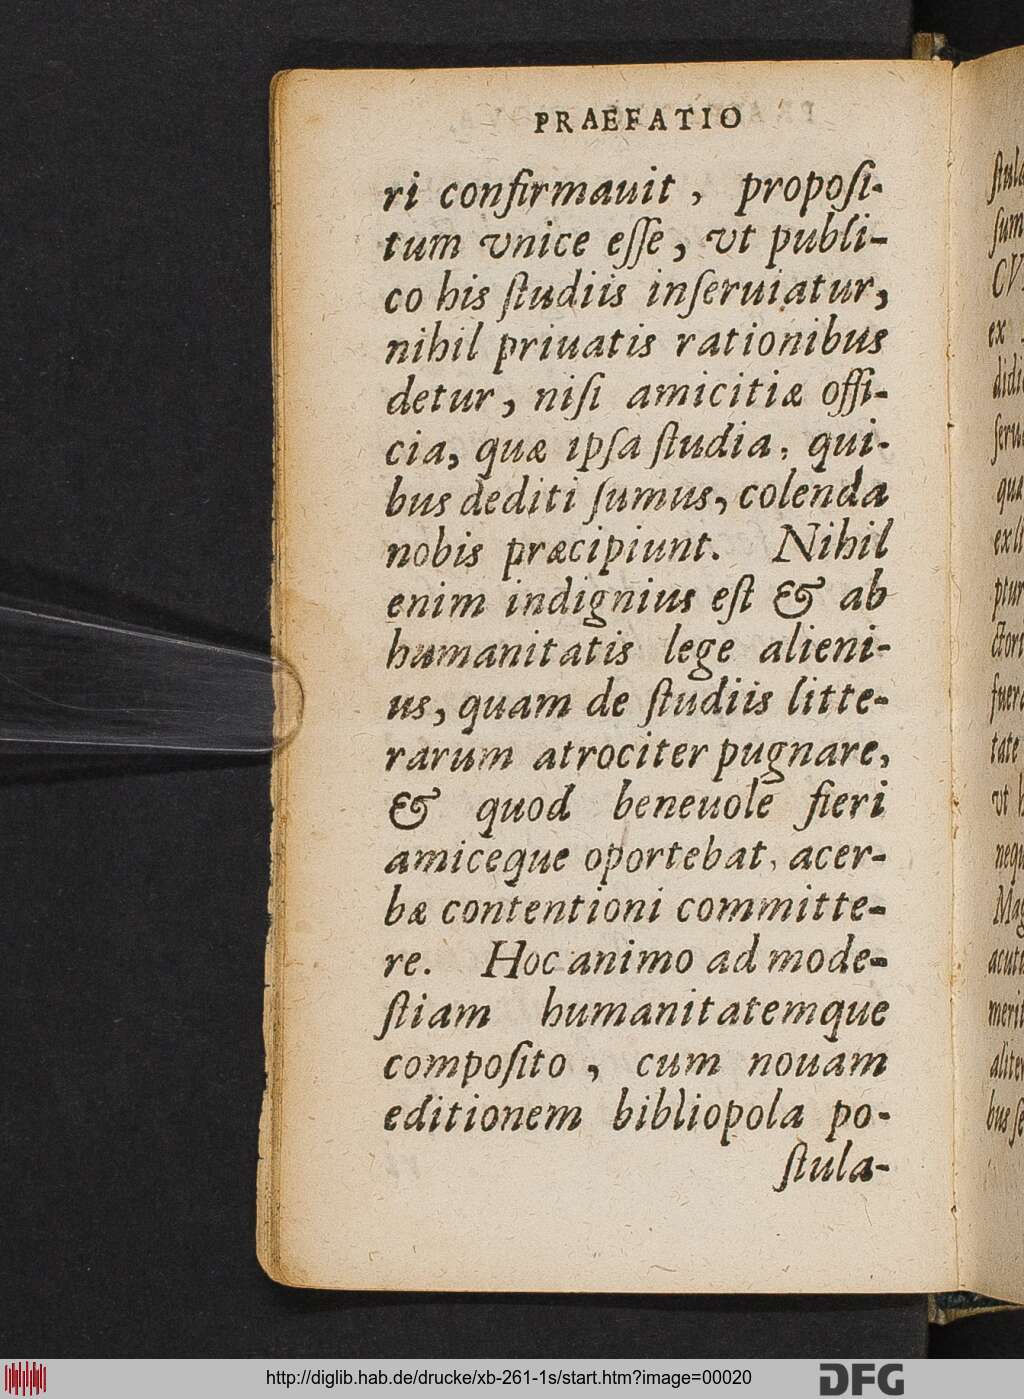 PRAEFATIO
ri confirmauit, propoſi-
tum vnice eſſe, vt publi-
co his ſtudiis inſeruiatur,
nihil priuatis rationibus
detur, niſi amicitiæ offi-
cia, quæ ipſa ſtudia, qui-
bus dediti ſumus, colenda
nobis præcipiunt. Nihil
enim indignius eſt & ab
humanitatis lege alieni-
us, quam de ſtudiis litte-
rarum atrociter pugnare,
& quod beneuole fieri
amiceque oportebat, acer-
bæ contentioni committe-
re. Hoc animo ad mode-
ſtiam humanitatemque
compoſito, cum nouam
editionem bibliopola po-
ſtula-
CV
ex
tate
vt h
Mag
http://diglib.hab.de/drucke/xb-261-1s/start.htm?image=00020
DFG